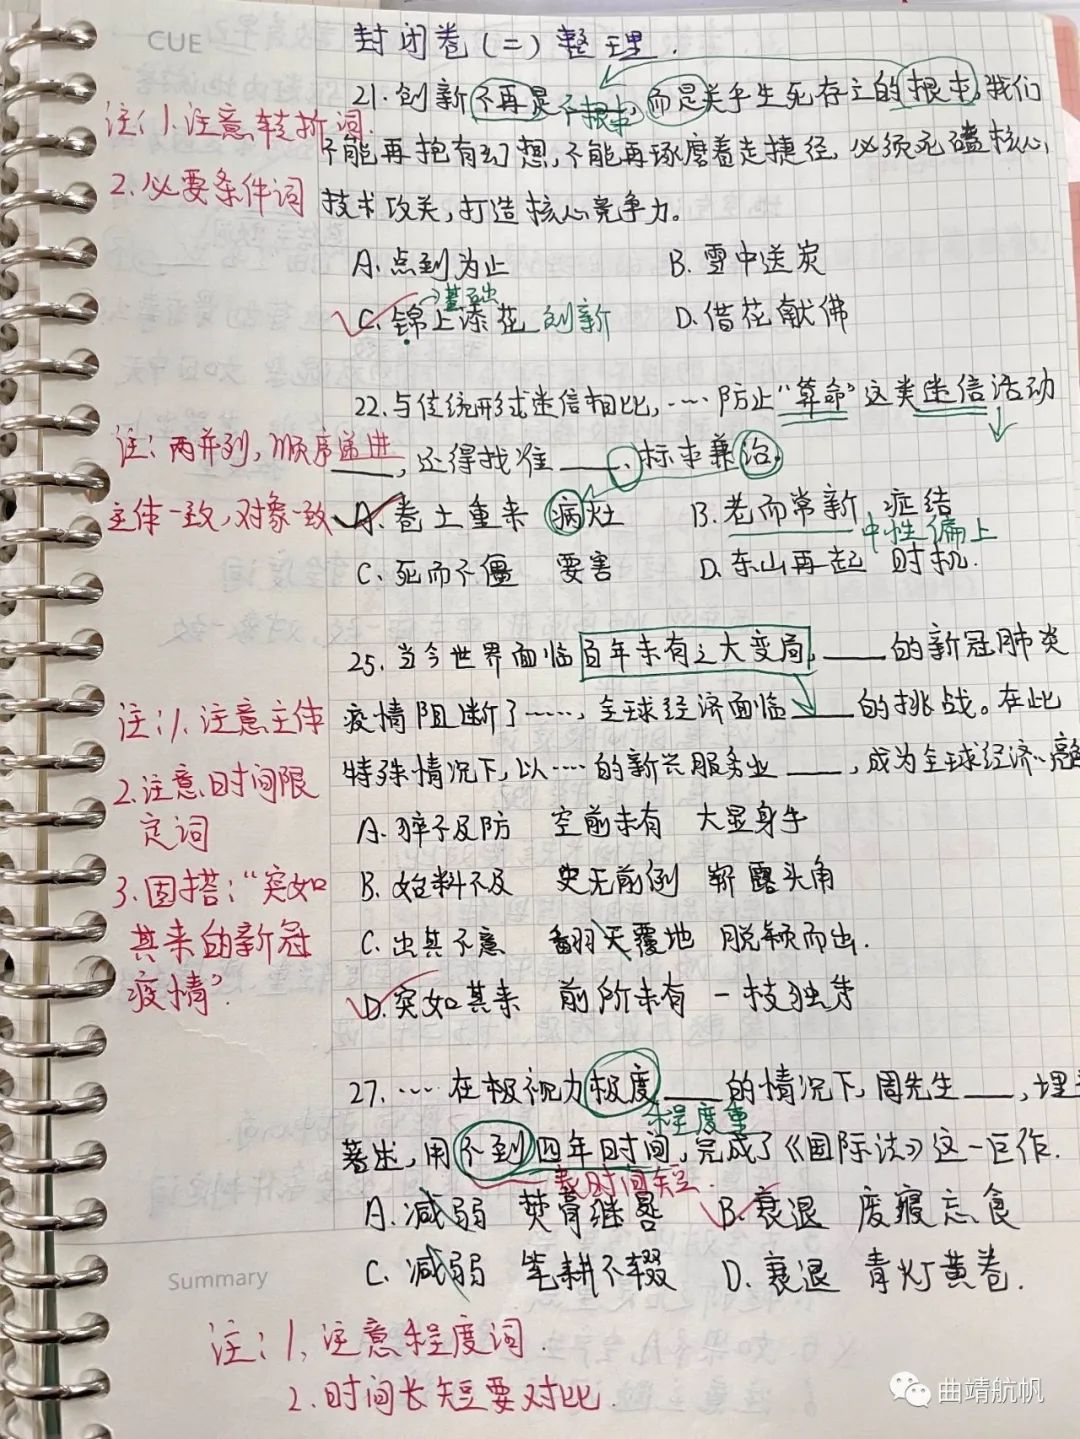 CUE
封闭卷(二)整理.
21.创新不再是不根本,而是关乎生死存亡的根本,我们
注:1.注意转折词.
不能再抱有幻想,不能再琢磨着走捷径,必须死磕核心
2.必要条件词
技术攻关,打造核心竞争力。
A.点到为止 B.雪中送炭
→基础
C.锦上添花 创新 D.借花献佛
22.与传统形式迷信相比,……防止"算命"这类迷信活动
注:两并列,顺序递进
____,还得找准____、标本兼治。
主体一致,对象一致
A.卷土重来 病灶 B.老而常新 症结
中性偏上
C.死而不僵 要害 D.东山再起 时机.
25.当今世界面临百年未有之大变局,____的新冠肺炎
注:1.注意主体
疫情阻断了……,全球经济面临____的挑战。在此
特殊情况下,以……的新兴服务业____,成为全球经济亮
2.注意时间限
定词
A.猝不及防 空前未有 大显身手
3.固搭:"突如
B.始料不及 史无前例 崭露头角
其来的新冠
C.出其不意 翻天覆地 脱颖而出.
疫情".
D.突如其来 前所未有 一枝独秀
27.……在极视力极度____的情况下,周先生____,埋
程度重
著述,用不到四年时间,完成了《国际法》这一巨作.
表时间短.
A.减弱 焚膏继晷 B.衰退 废寝忘食
C.减弱 笔耕不辍 D.衰退 青灯黄卷.
Summary
注:1.注意程度词.
2.时间长短要对比.
曲靖航帆